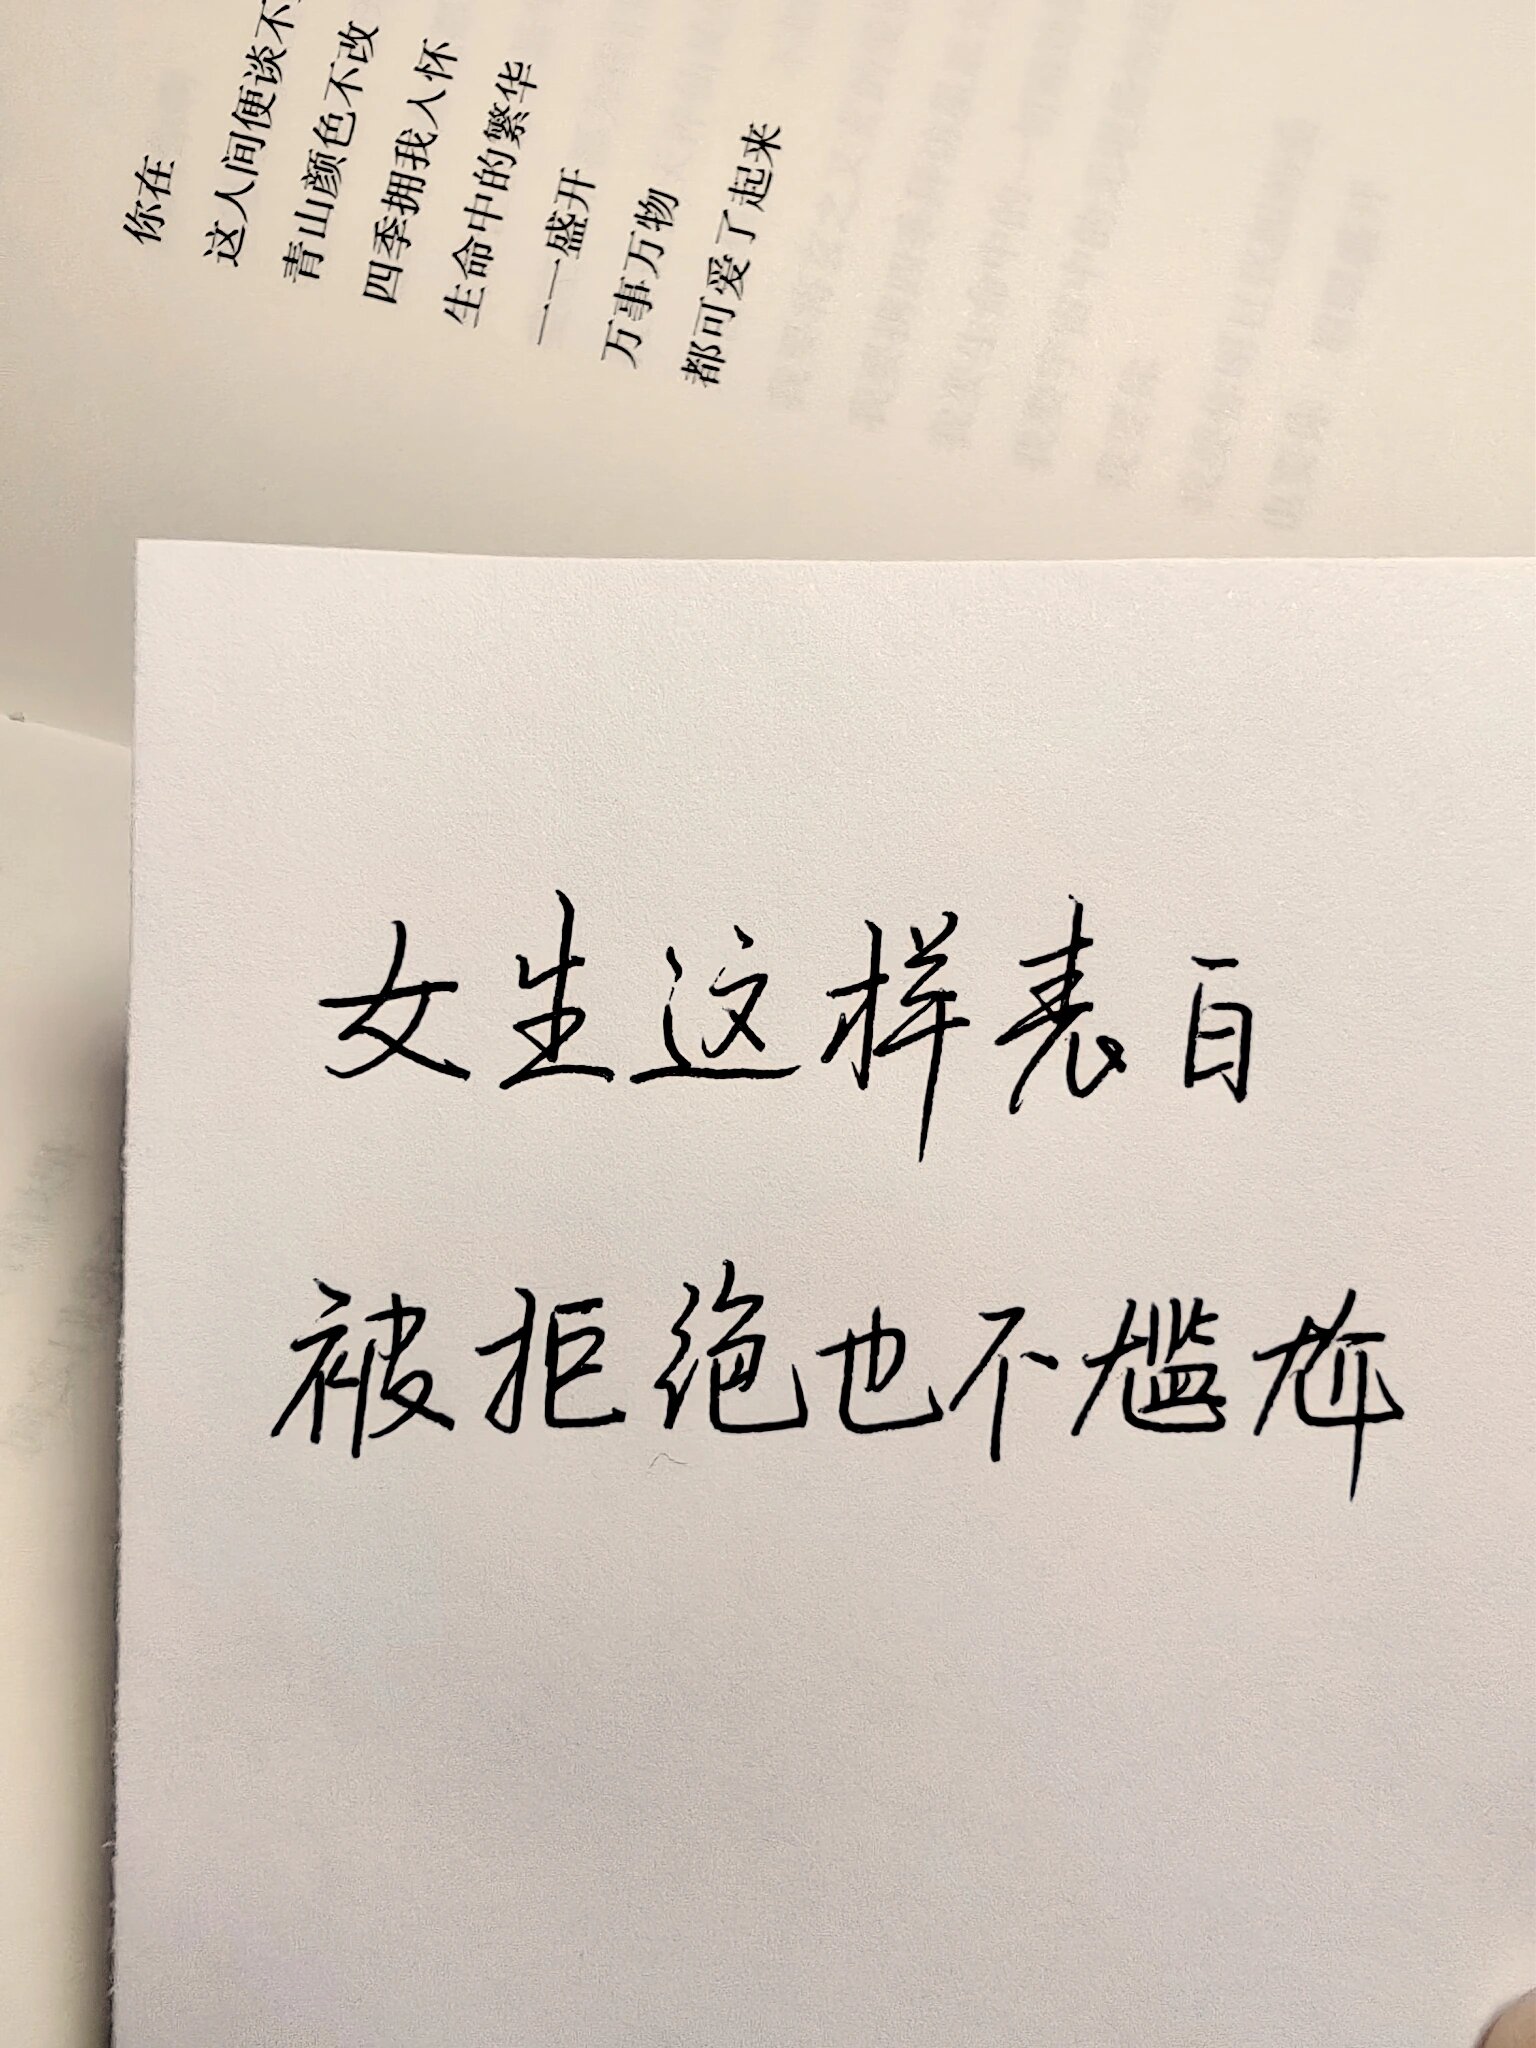 你在
这人间便谈不
青山颜色不改
四季拥我入怀
生命中的繁华
一一盛开
万事万物
都可爱了起来
女生这样表白
被拒绝也不尴尬